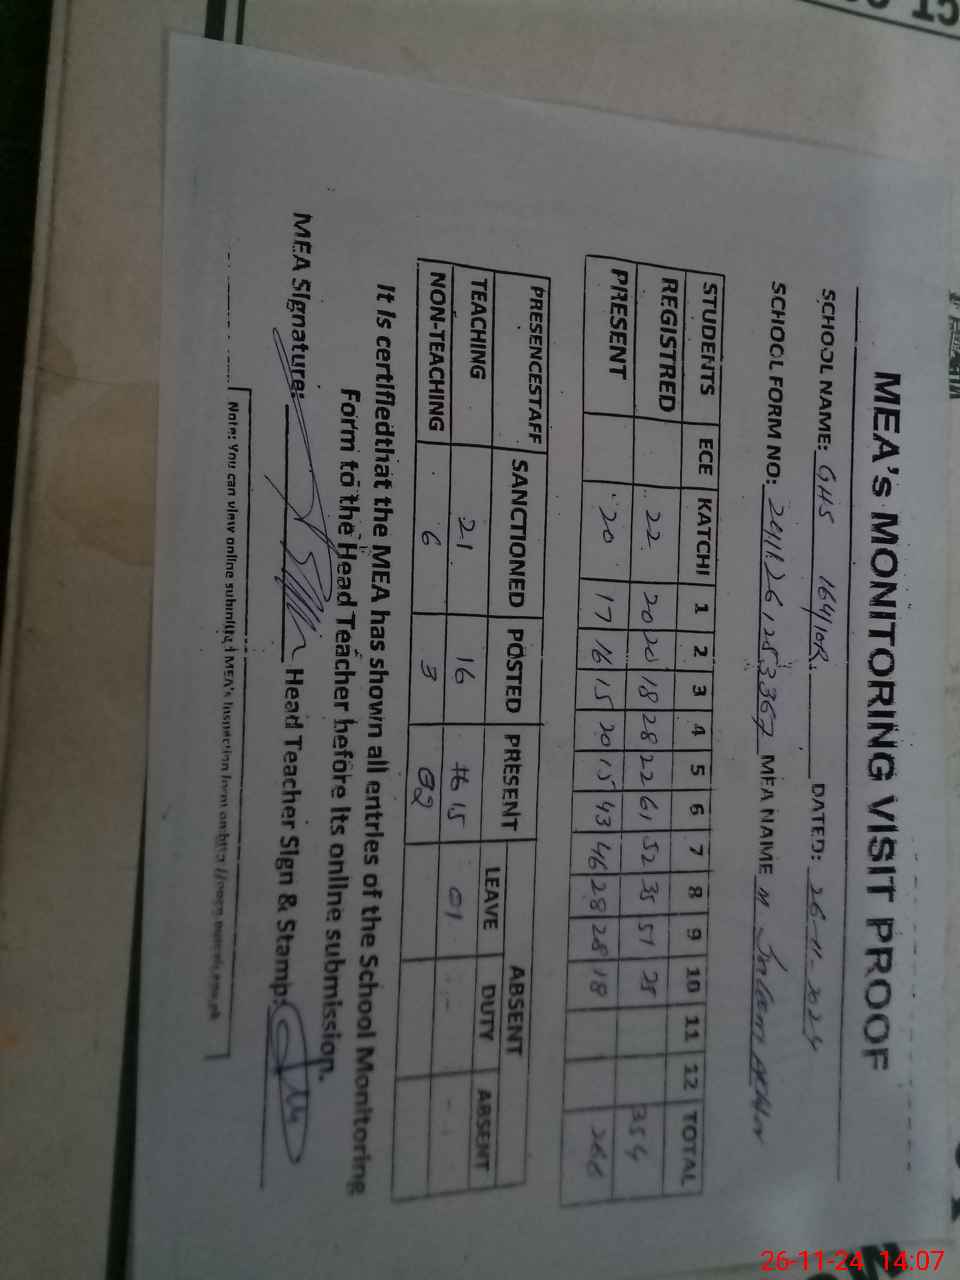 15
MEA's MONITORING VISIT PROOF
SCHOOL NAME: GHS 164/10R. DATED: 26-11-2024
SCHOOL FORM NO: 2411261253367 MEA NAME M.
STUDENTS ECE KATCHI 1 2 3 4 5 6 7 8 9 10 11 12 TOTAL
REGISTRED 22 20 20 18 28 22 61 52 35 51 25 354
PRESENT 20 17 16 15 20 15 43 46 28 28 18 266
PRESENCESTAFF SANCTIONED POSTED PRESENT ABSENT
LEAVE DUTY ABSENT
TEACHING 21 16 15 01 - -
NON-TEACHING 6 3 02
It is certifiedthat the MEA has shown all entries of the School Monitoring
Form to the Head Teacher before its online submission.
MEA Signature: Head Teacher Sign & Stamp:
Note: You can view online submitted MEA's Inspection form on
26-11-24 14:07